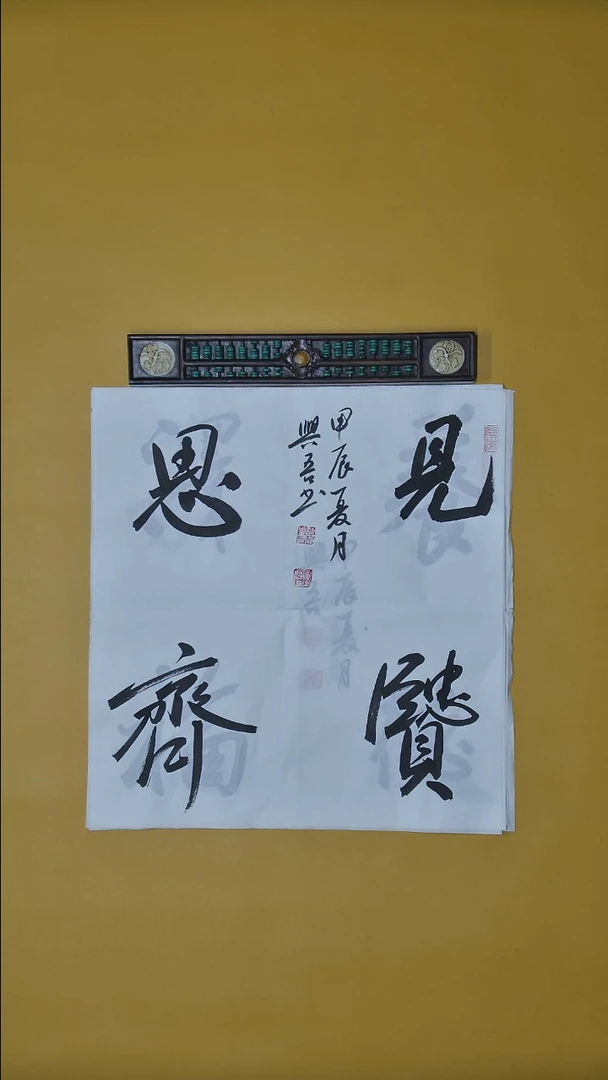 見賢
思齊
甲辰夏月
興吾书